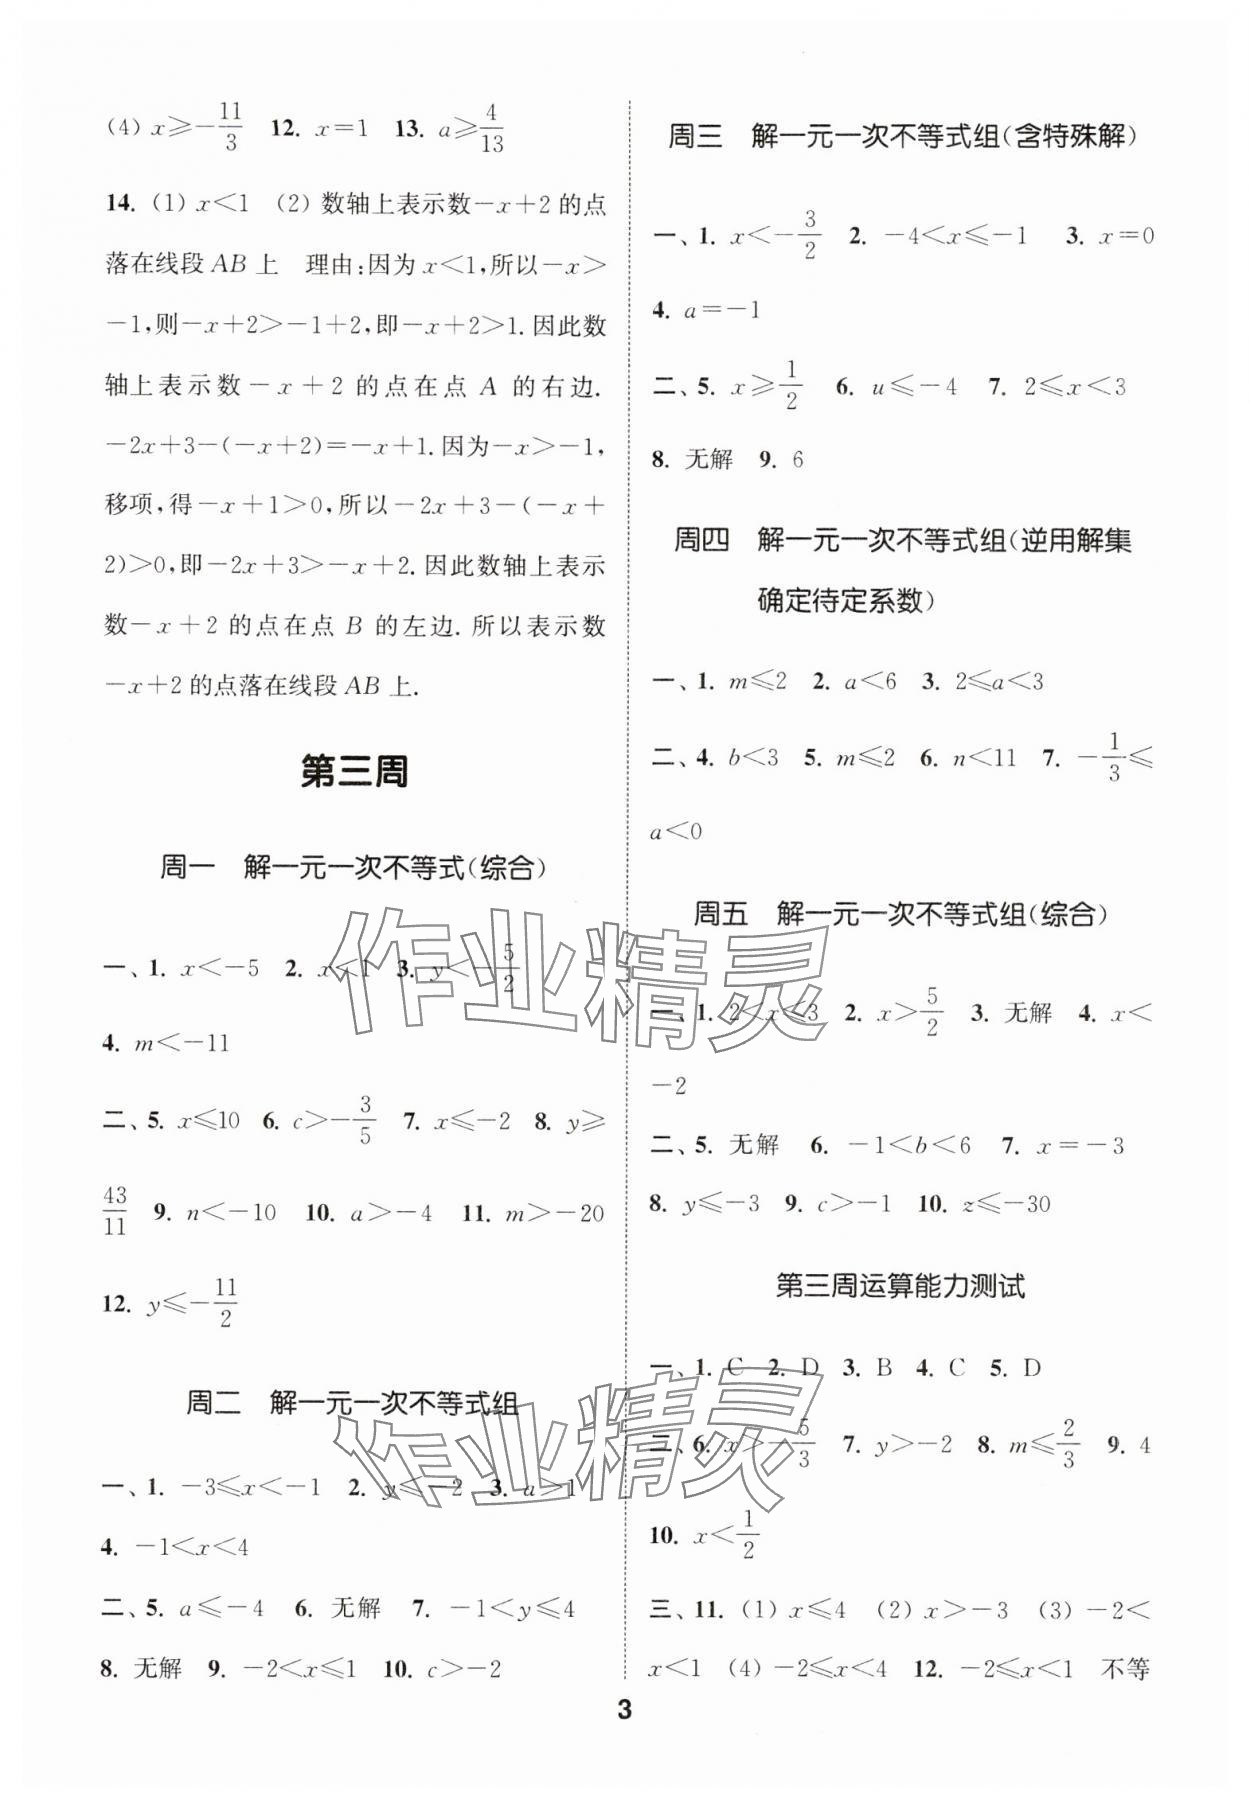 (4) x≥-11/3 12. x=1 13. a≥4/13
14. (1) x<1 (2) 数轴上表示数-x+2的点
落在线段AB上 理由:因为x<1,所以-x>
-1,则-x+2>-1+2,即-x+2>1.因此数
轴上表示数-x+2的点在点A的右边.
-2x+3-(-x+2)=-x+1.因为-x>-1,
移项,得-x+1>0,所以-2x+3-(-x+
2)>0,即-2x+3>-x+2.因此数轴上表示
数-x+2的点在点B的左边.所以表示数
-x+2的点落在线段AB上.
第三周
周一 解一元一次不等式(综合)
一、1. x<-5 2. x<1 3. y<-5/2
4. m<-11
二、5. x≤10 6. c>-3/5 7. x≤-2 8. y≥
43/11 9. n<-10 10. a>-4 11. m>-20
12. y≤-11/2
周二 解一元一次不等式组
一、1. -3≤x<-1 2. y≤-2 3. a>1
4. -1<x<4
二、5. a≤-4 6. 无解 7. -1<y≤4
8. 无解 9. -2<x≤1 10. c>-2
周三 解一元一次不等式组(含特殊解)
一、1. x<-3/2 2. -4<x≤-1 3. x=0
4. a=-1
二、5. x≥1/2 6. u≤-4 7. 2≤x<3
8. 无解 9. 6
周四 解一元一次不等式组(逆用解集
确定待定系数)
一、1. m≤2 2. a<6 3. 2≤a<3
二、4. b<3 5. m≤2 6. n<11 7. -1/3≤
a<0
周五 解一元一次不等式组(综合)
一、1. 2<x≤3 2. x>5/2 3. 无解 4. x<
-2
二、5. 无解 6. -1<b<6 7. x=-3
8. y≤-3 9. c>-1 10. z≤-30
第三周运算能力测试
一、1. C 2. D 3. B 4. C 5. D
二、6. x>-5/3 7. y>-2 8. m≤2/3 9. 4
10. x<1/2
三、11. (1) x≤4 (2) x>-3 (3) -2<
x<1 (4) -2≤x<4 12. -2≤x<1 不等
3
作业精灵
作业精灵